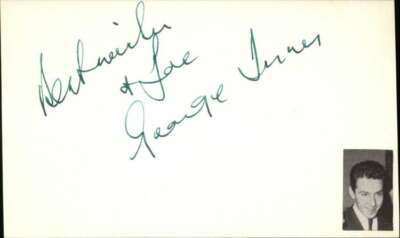 Best wishes
to Joe
George Turner